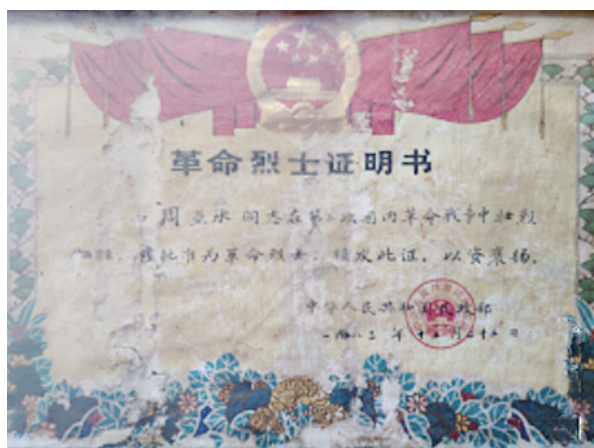 革命烈士证明书
周 永 同志在第二次国内革命战争中壮烈
牺牲，经批准为革命烈士。特发此证，以资褒扬。
中华人民共和国民政部
一九八三年十二月二十 日